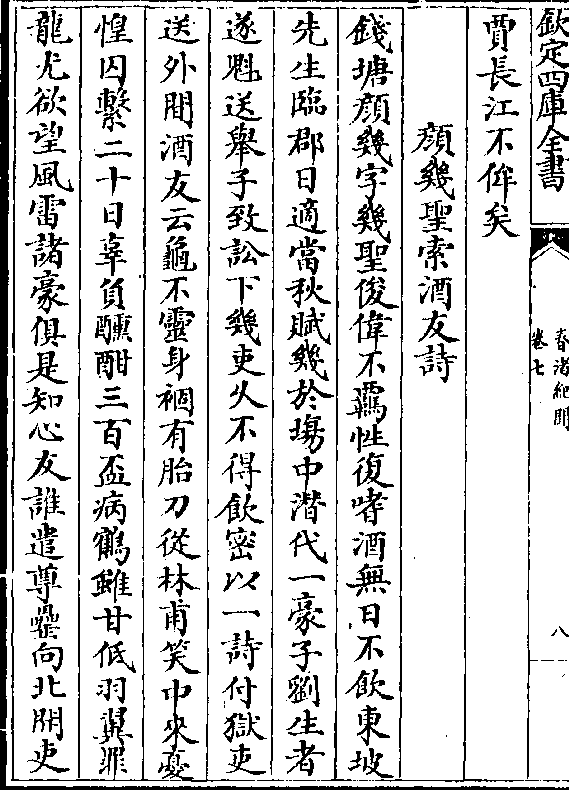 欽定四庫全書
春渚紀聞
卷七
八
賈長江不侔矣
顔幾聖索酒友詩
錢塘顔幾字幾聖俊偉不羈性復嗜酒無日不飲東坡
先生臨郡日適當秋賦幾於塲中潜代一豪子劉生者
遂魁送舉子致訟下幾吏久不得飲密以一詩付獄吏
送外間酒友云龜不靈身禍有胎刀從林甫笑中來憂
惶囚繫二十日辜負醺酣三百盃病鶴雖甘低羽翼罪
龍尤欲望風雷諸豪俱是知心友誰遣尊罍向北開吏